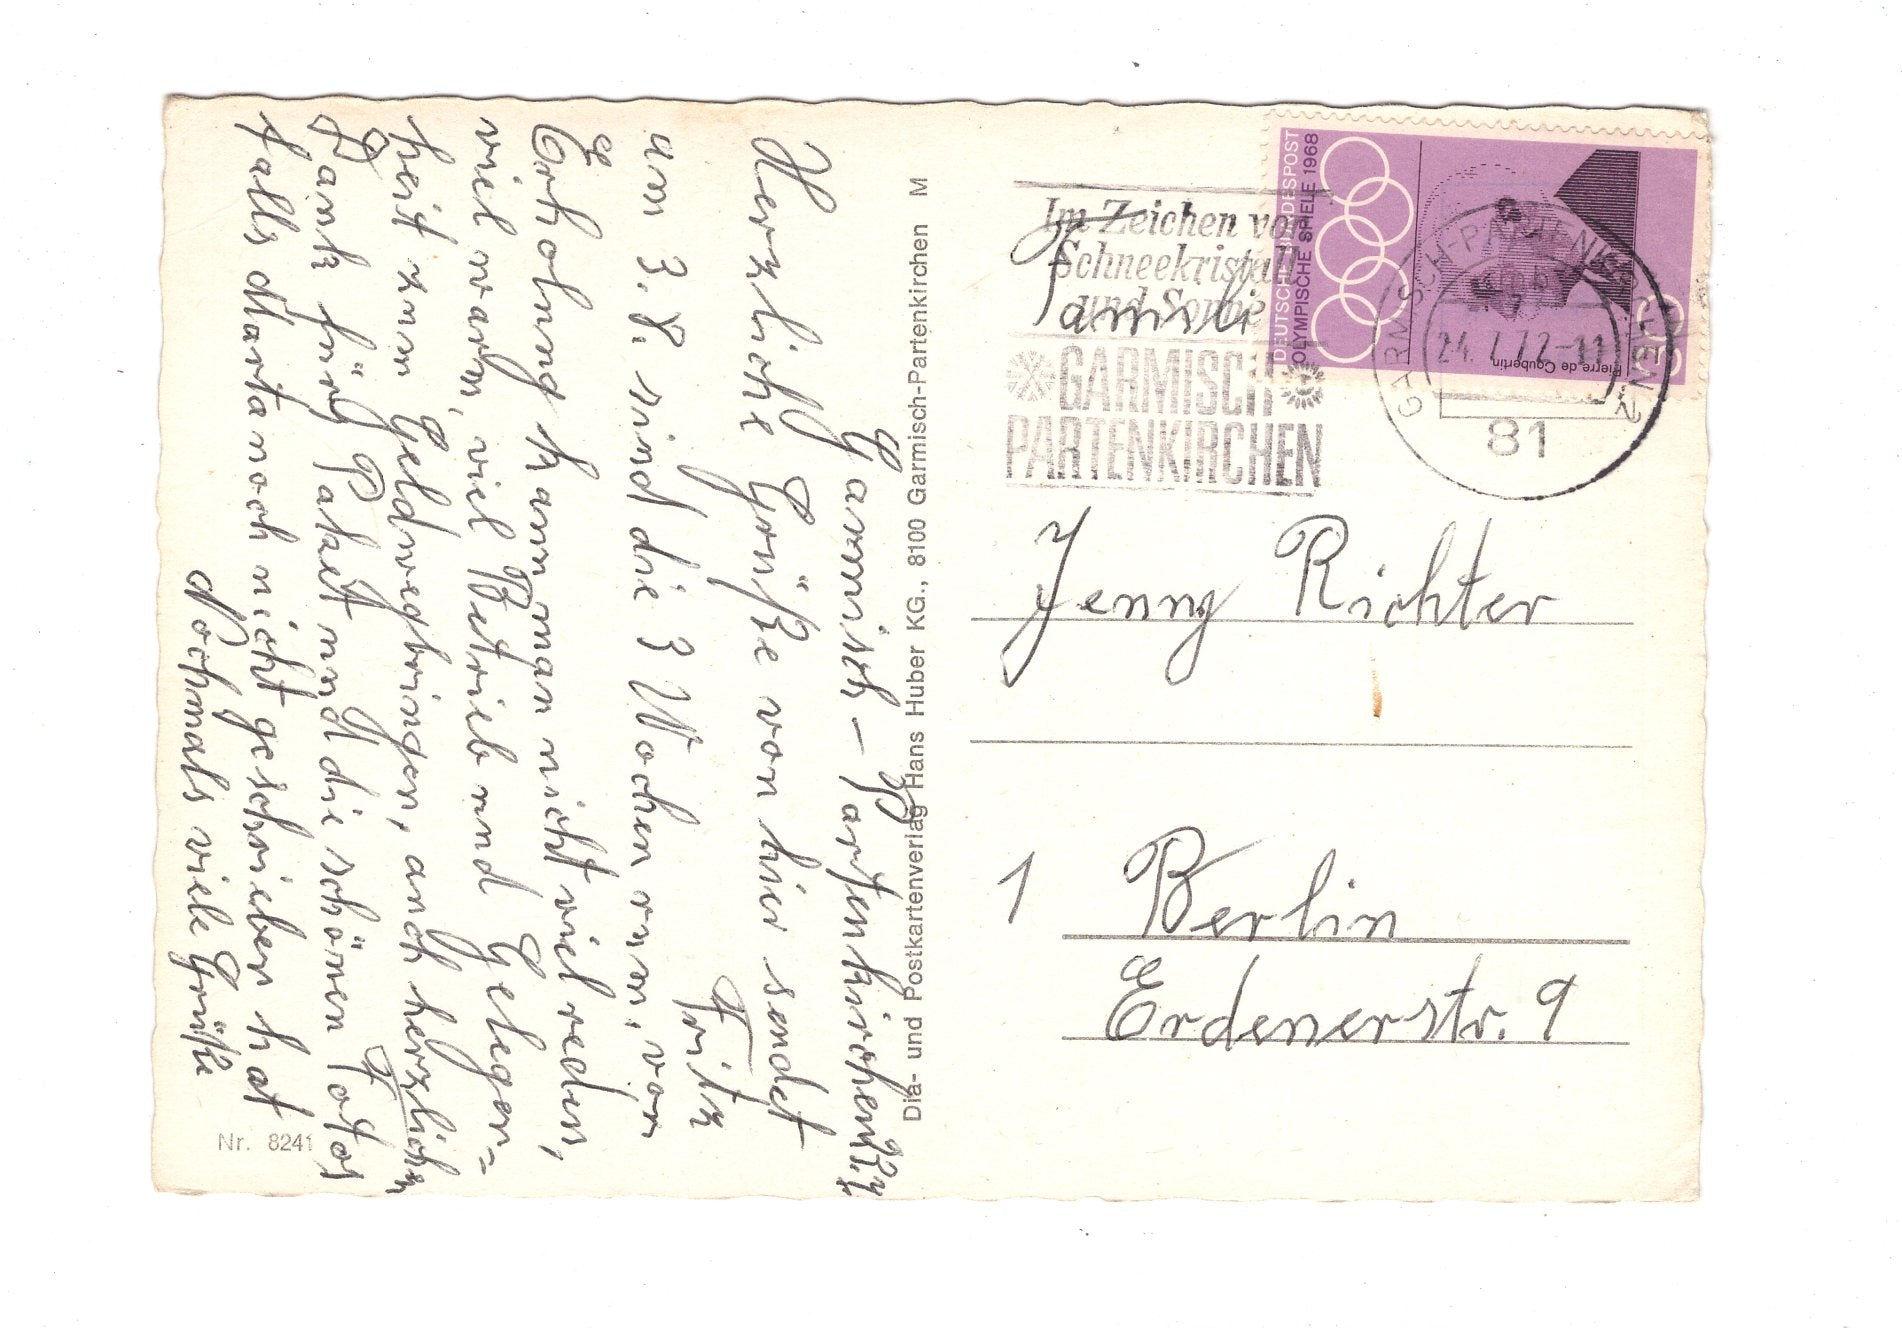 Garmisch-Partenkirchen
Herzliche Grüße von hier sendet
Fritz
am 3.8. sind die 3 Wochen rum, von
Erholung kann man nicht viel reden,
viel warm, viel Betrieb und Gelegen=
heit zum Geldwegbringen, auch herzlichen
Dank fürs Paket und die schönen Fotos
falls Marta noch nicht geschrieben hat
Nochmals viele Grüße
Nr. 8241
Dia- und Postkartenverlag Hans Huber KG., 8100 Garmisch-Partenkirchen M
DEUTSCHE BUNDESPOST
OLYMPISCHE SPIELE 1968
Pierre de Coubertin
Im Zeichen von
Schneekristall
und Sonne
GARMISCH
PARTENKIRCHEN
GARMISCH-PARTENKIRCHEN 2
24.7.72-11
81
Familie
Jenny Richter
1 Berlin
Erdenerstr. 9